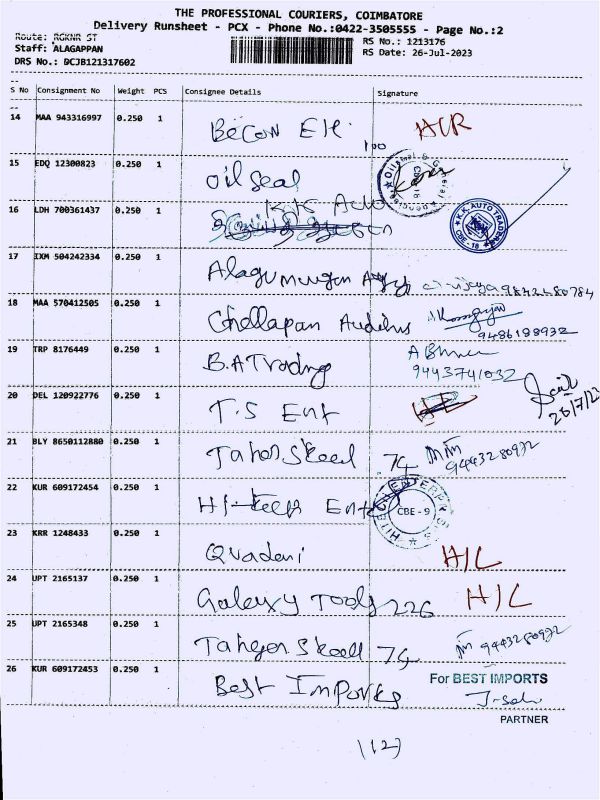 THE PROFESSIONAL COURIERS, COIMBATORE
Delivery Runsheet - PCX - Phone No.:0422-3505555 - Page No.:2
Route: RGKNR ST
RS No.: 1213176
Staff: ALAGAPPAN
RS Date: 26-Jul-2023
DRS No.: DCJB121317602
S No Consignment No Weight PCS Consignee Details Signature
14 MAA 943316997 0.250 1 Becon Ele. 100
15 EDQ 12300823 0.250 1 Oil Seal
16 LDH 700361437 0.250 1 K.K Auto K.K. AUTO TRADERS CBE-18
17 IXM 504242334 0.250 1 Alagumurugan 9842480784
18 MAA 570412505 0.250 1 Chellapan 9486188932
19 TRP 8176449 0.250 1 B.A Trading 9443741032
20 DEL 120922776 0.250 1 T.S Ent
21 BLY 8650112880 0.250 1 74 9443280932
22 KUR 609172454 0.250 1 Hi-Keep Ent CBE - 9
23 KRR 1248433 0.250 1 Quadani H/L
24 UPT 2165137 0.250 1 Galaxy Tools 226 H/L
25 UPT 2165348 0.250 1 74 9443280932
26 KUR 609172453 0.250 1 Best Imports For BEST IMPORTS
PARTNER
(12)